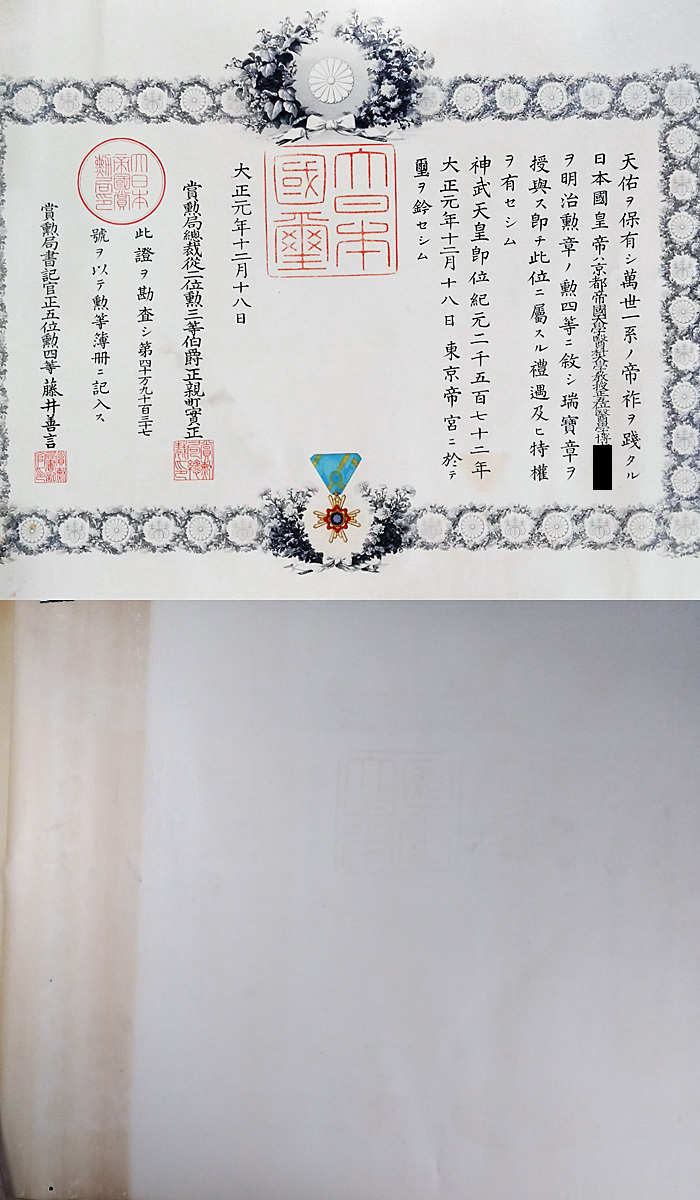 天佑ヲ保有シ萬世一系ノ帝祚ヲ踐タル
日本國皇帝ハ京都帝國大學醫科大學教授正五位醫學博
ヲ明治勲章ノ勲四等ニ敘シ瑞寶章ヲ
授與ス卽チ此位ニ屬スル禮遇及ヒ特權
ヲ有セシム
神武天皇卽位紀元二千五百七十二年
大正元年十二月十八日東京帝宮ニ於テ
璽ヲ鈐セシム
大日本國璽
大正元年十二月十八日
賞勲局總裁從二位勲三等伯爵正親町實正
此證ヲ勘査シ第四十万九千百三十七
號ヲ以テ勲等簿册ニ記入ス
賞勲局書記官正五位勲四等藤井善言